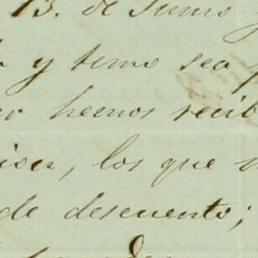 13. de Junio
y temo sea
hemos recib
los que
de descuento;